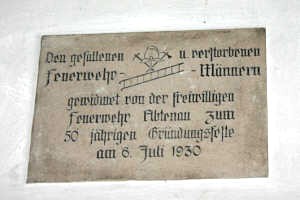 Den gefallenen u. verstorbenen
Feuerwehr- Männern
gewidmet von der freiwilligen
Feuerwehr Abtenau zum
50 jährigen Gründungsfeste
am 6. Juli 1930